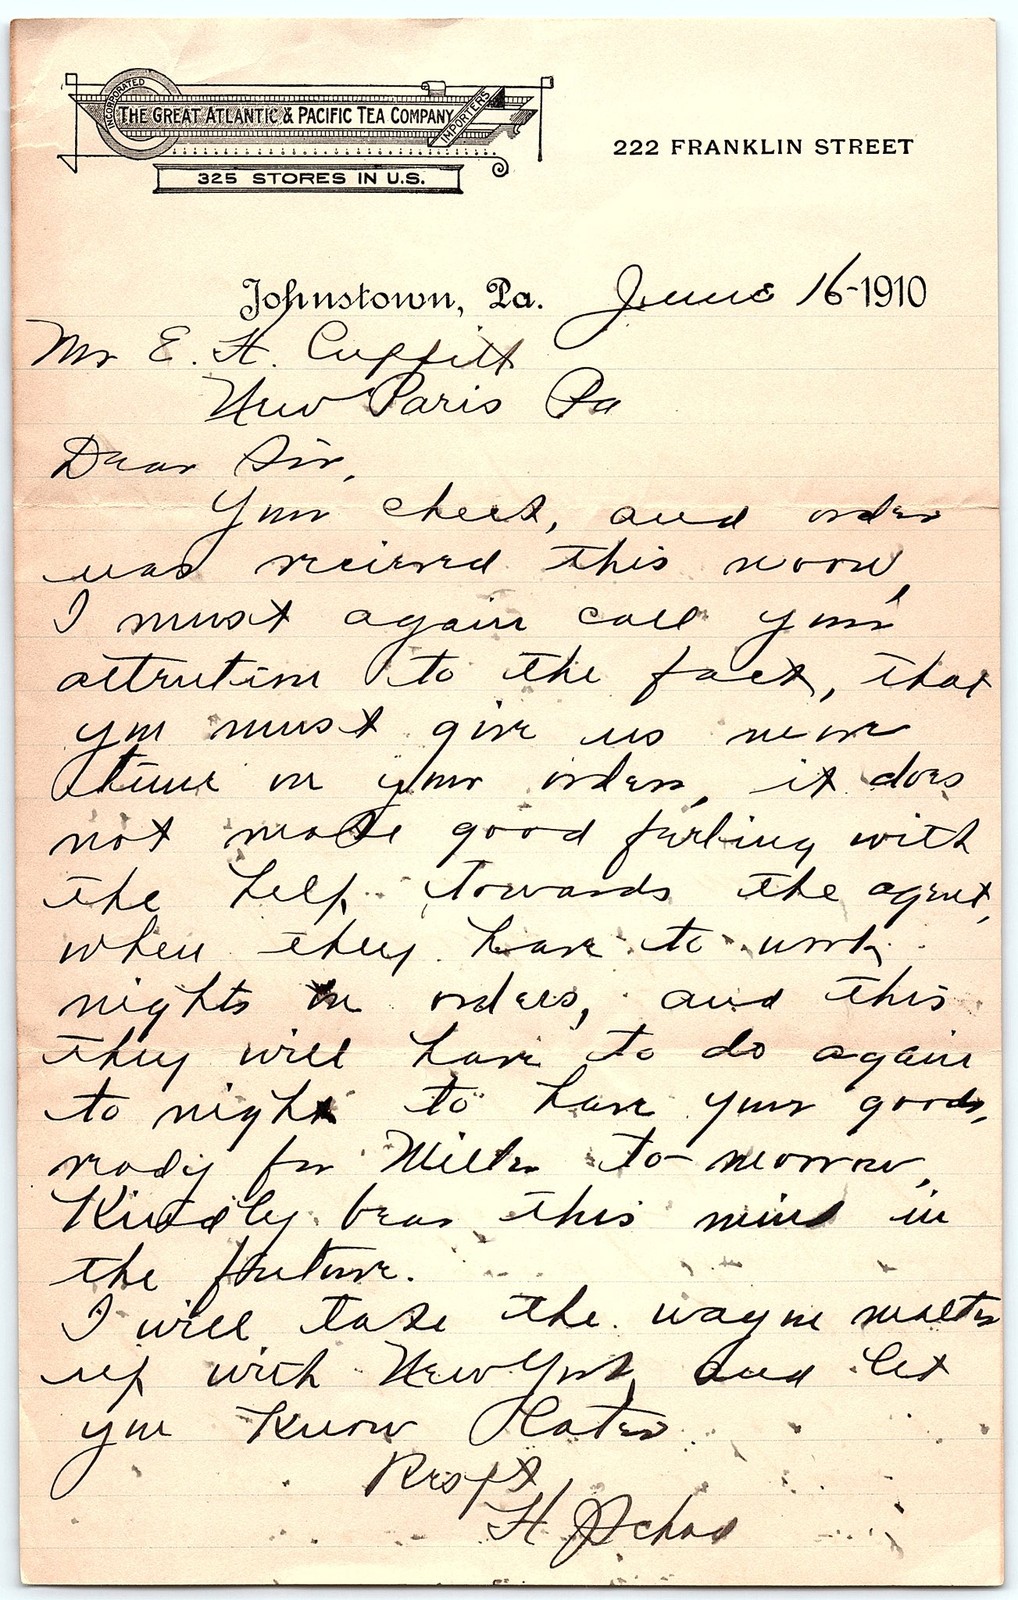 INCORPORATED
THE GREAT ATLANTIC & PACIFIC TEA COMPANY
IMPORTERS
325 STORES IN U.S.
222 FRANKLIN STREET
Johnstown, Pa. June 16-1910
Mr E. H. Cuppitt
New Paris Pa
Dear Sir,
Your check, and order
was recieved this noon,
I must again call your
attention to the fact, that
you must give us more
time on your orders, it does
not make good feeling with
the help towards the agent,
when they have to work
nights on orders, and this
they will have to do again
to night to have your goods,
ready for Miller to-morrow,
Kindly bear this mind in
the future.
I will take the wagon matter
up with New York, and let
you know later
Respt
H Schad